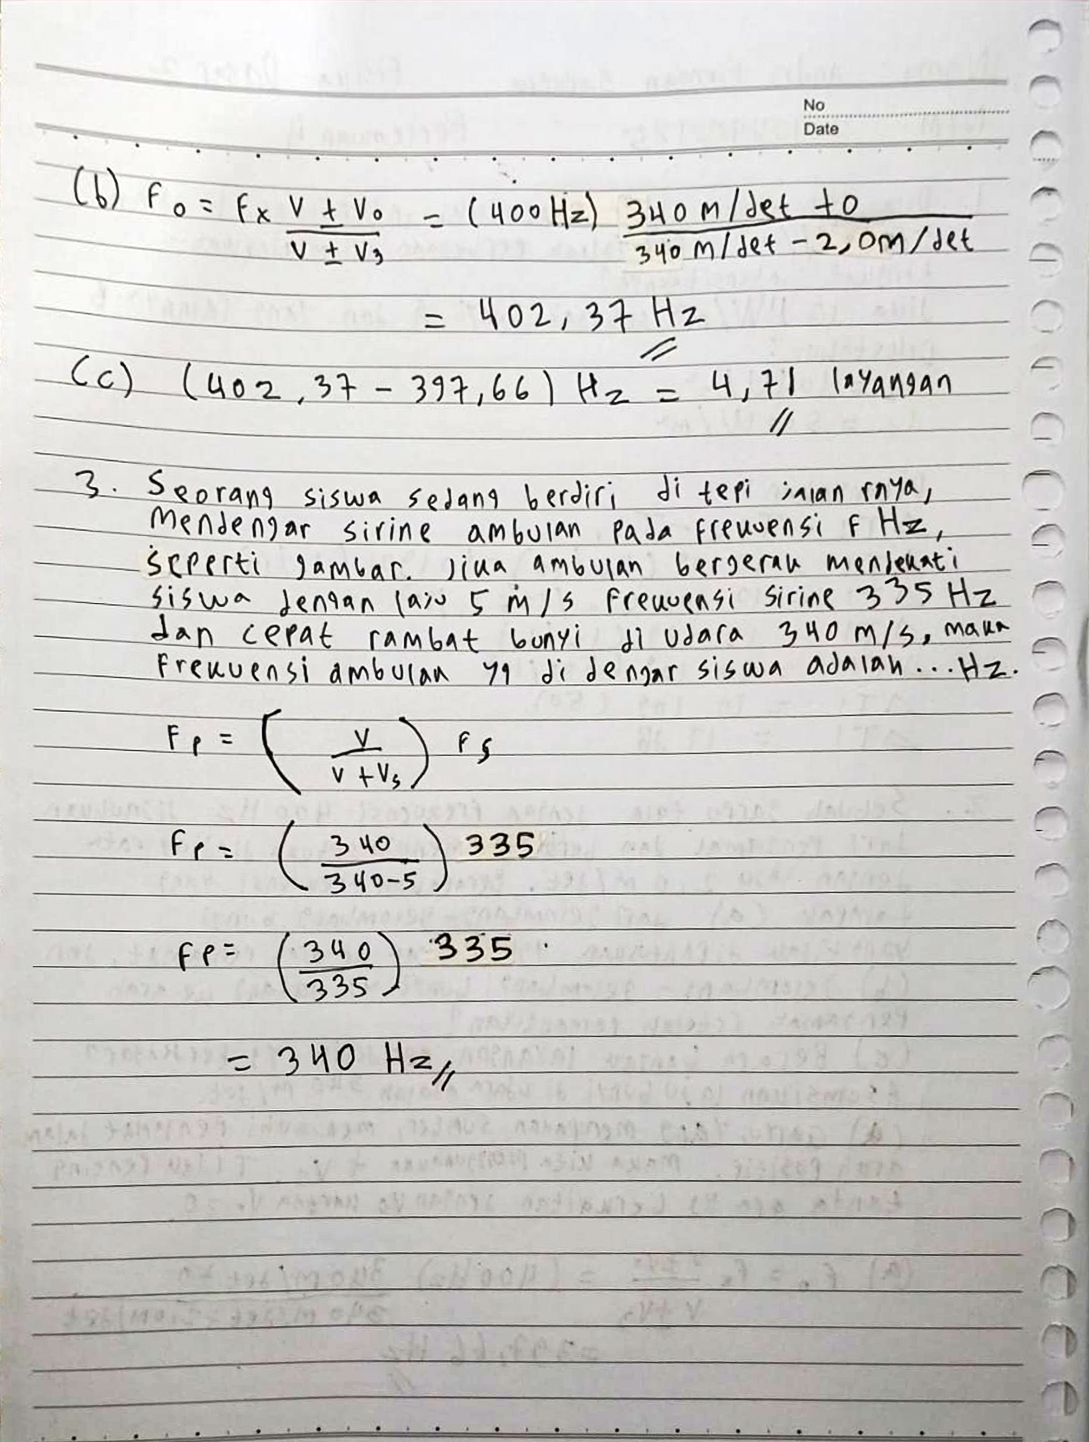 No
Date
(b) Fo = Fx V ± Vo / V ± V3 = (400 Hz) 340 m/det +0 / 340 m/det - 2,0 m/det
= 402,37 Hz
(c) (402,37 - 397,66) Hz = 4,71 layangan
3. Seorang siswa sedang berdiri di tepi jalan raya,
Mendengar sirine ambulan pada frekuensi F Hz,
seperti gambar. Jika ambulan bergerak mendekati
siswa dengan laju 5 m/s frekuensi sirine 335 Hz
dan cepat rambat bunyi di udara 340 m/s, maka
Frekuensi ambulan yg di dengar siswa adalah ... Hz.
Fp = ( V / V + Vs ) Fs
Fp = ( 340 / 340-5 ) 335
Fp = ( 340 / 335 ) 335
= 340 Hz